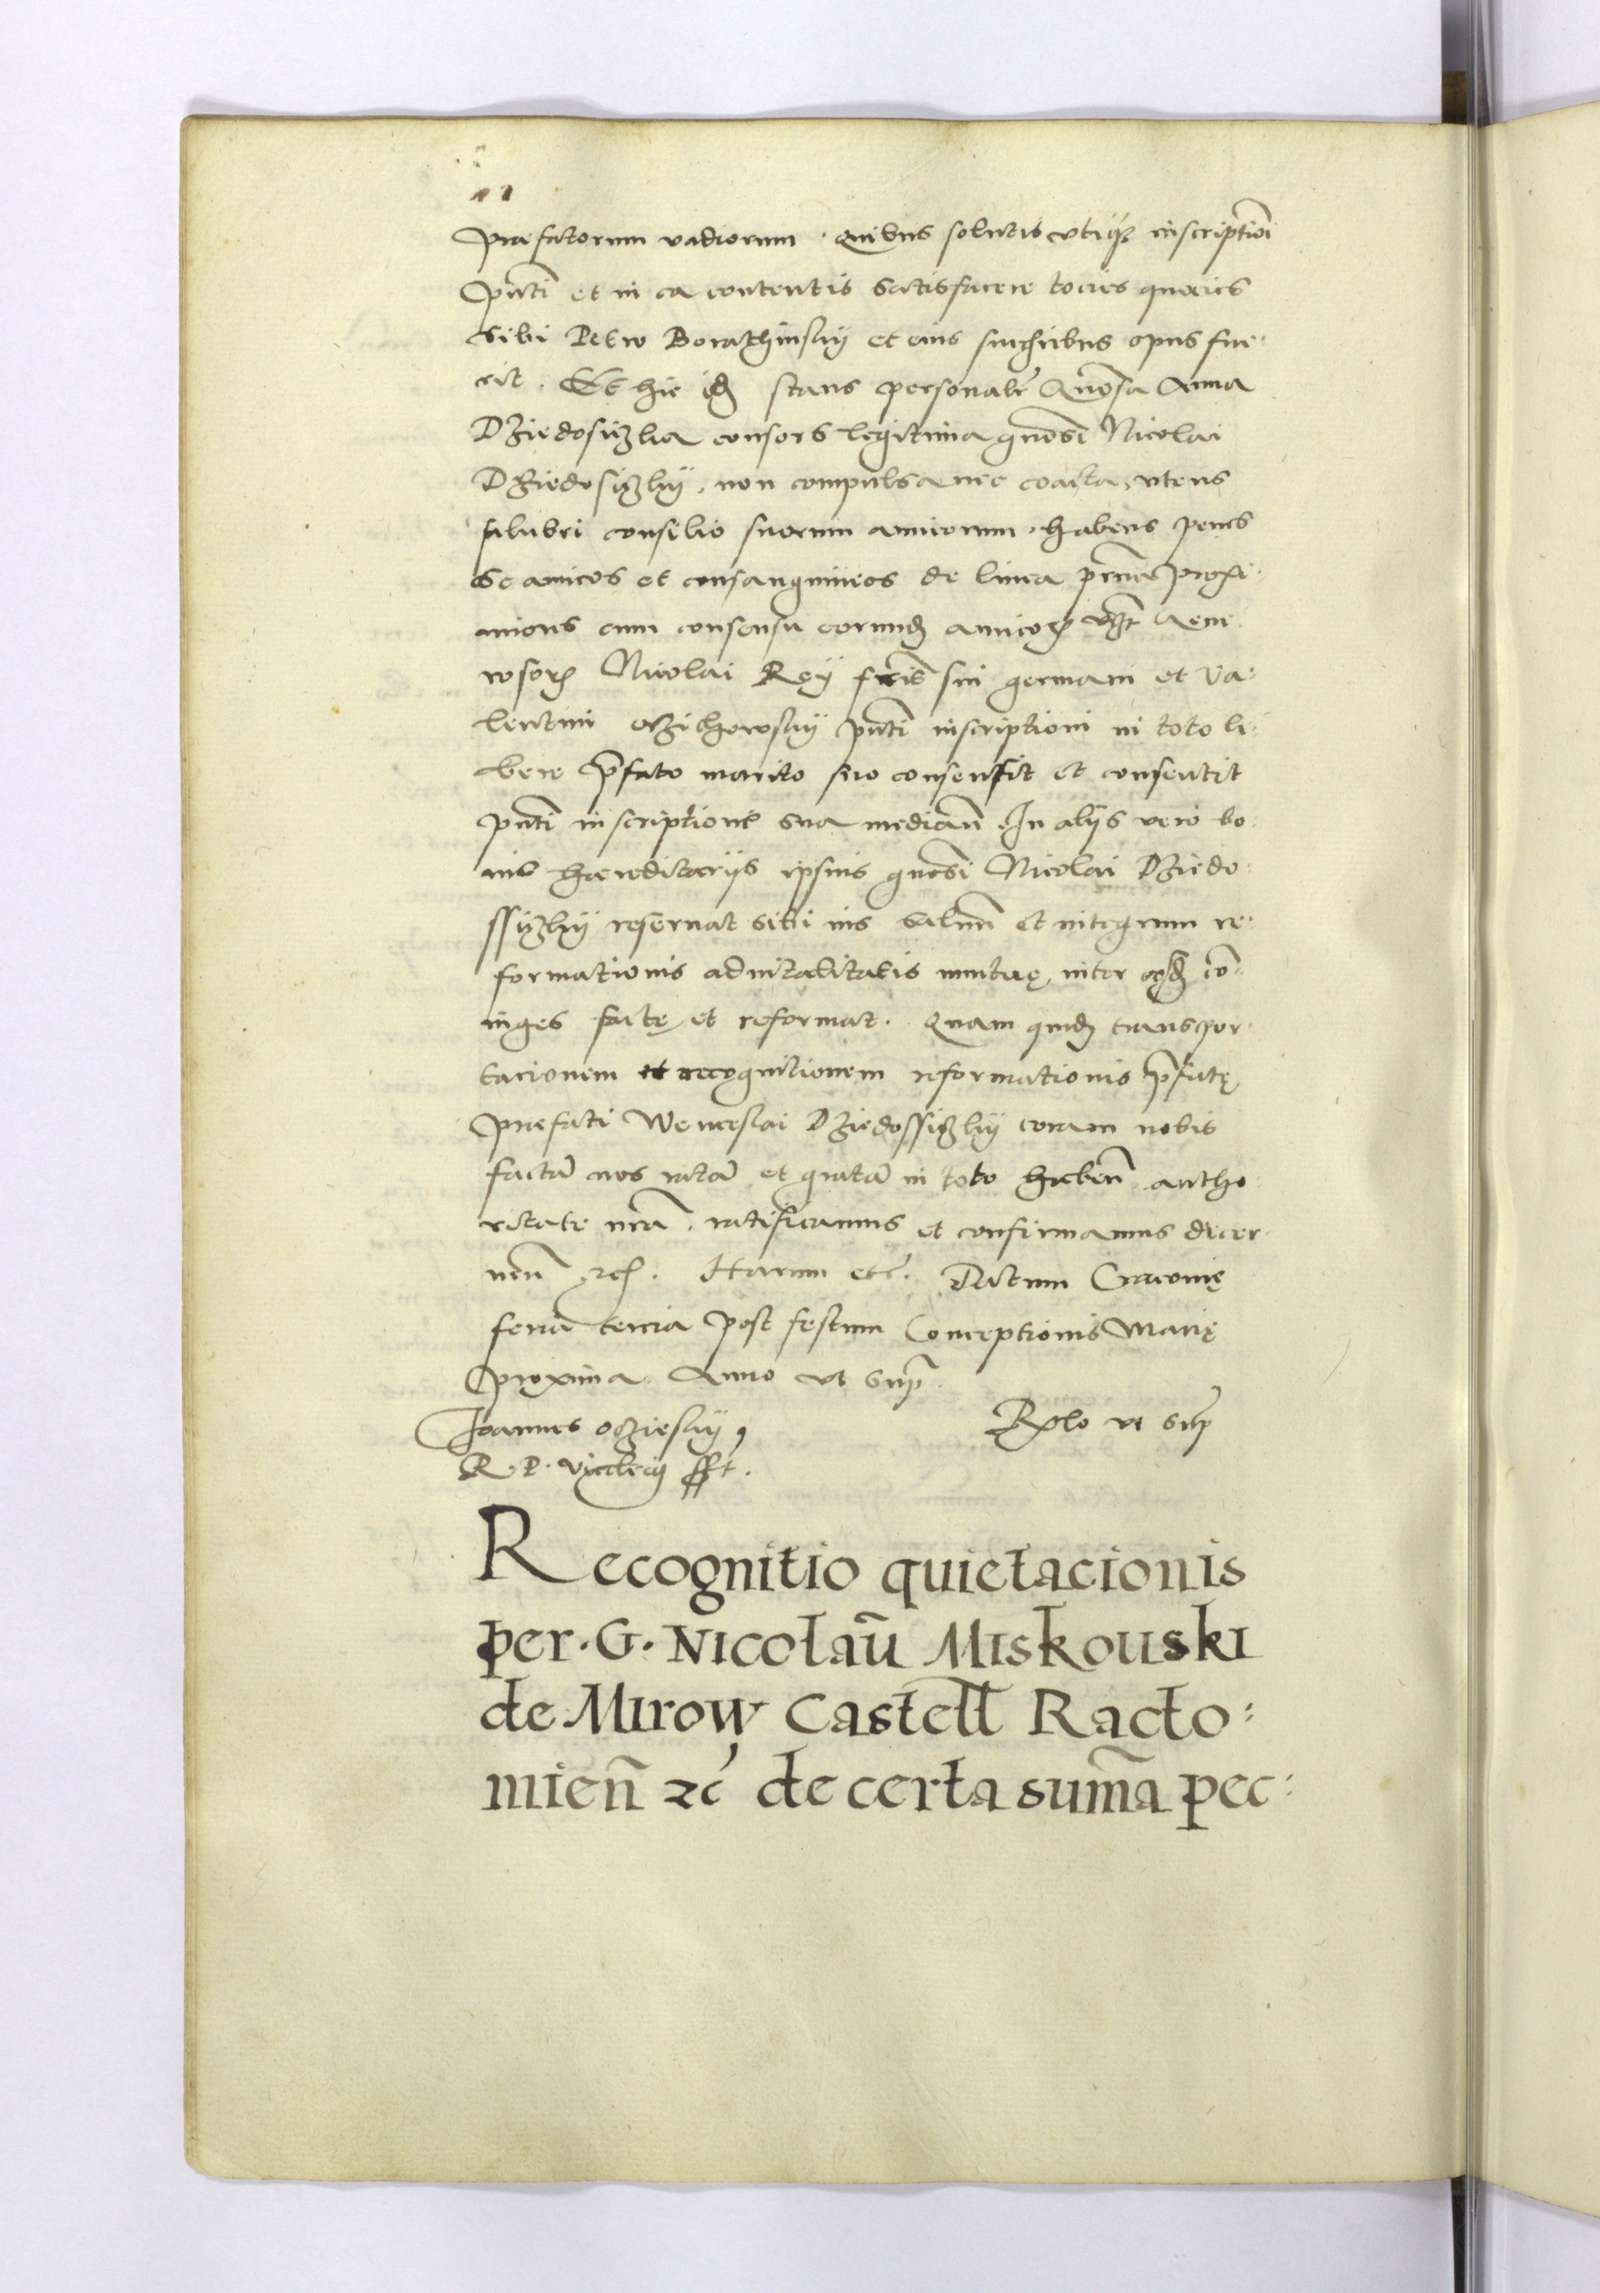 praefatorum vadiorum. Quibus solutis utiq inscriptioni
pnti et in ea contentis satisfacere tocies quocies
sibi Petro Borathinsky et eius succribus opus fue:
rit. Et hic id stans personalr Gnosa Anna
Dziedosiczka consors legitima gnosi Nicolai
Dziedosiczky, non compulsa nec coacta, utens
salubri consilio suorum amicorum, habens penes
se amicos et consanguineos de linea prna proxi:
miores cum consensu eorund amicor vzt Gene
rosor Nicolai Rey fris sui germani et Va:
lentini pnti inscriptioni in toto li:
bere pfato marito suo consensit et consentit
pnti inscriptione sua median. In alijs vero bo:
nis haereditarijs ipsius gnosi Nicolai Dziedo:
ssiczky reservat sibi ius salvum et integrum re:
formationis advitalitatis mutuę inter eosd con:
iuges factę et reformat. Quam quid transpor:
tacionem et recognitionem reformationis pfatę
praefati Wenceslai Dziedossiczky coram nobis
factā nos ratā et gratā in toto haben autho
ritate nra. ratificamus et confirmamus decer
nen zc. Harum etc. Datum Cracovię
feria tercia post festum Conceptionis Marię
proxima Anno ut supra.
Joannes Ocziesky Relo ut sup
R. P. Vicecan sst.
Recognitio quietacionis
per. G. Nicolaū Miskouski
de Mirow Castell Racto:
mien̄ zc de certa sum̄a pec: